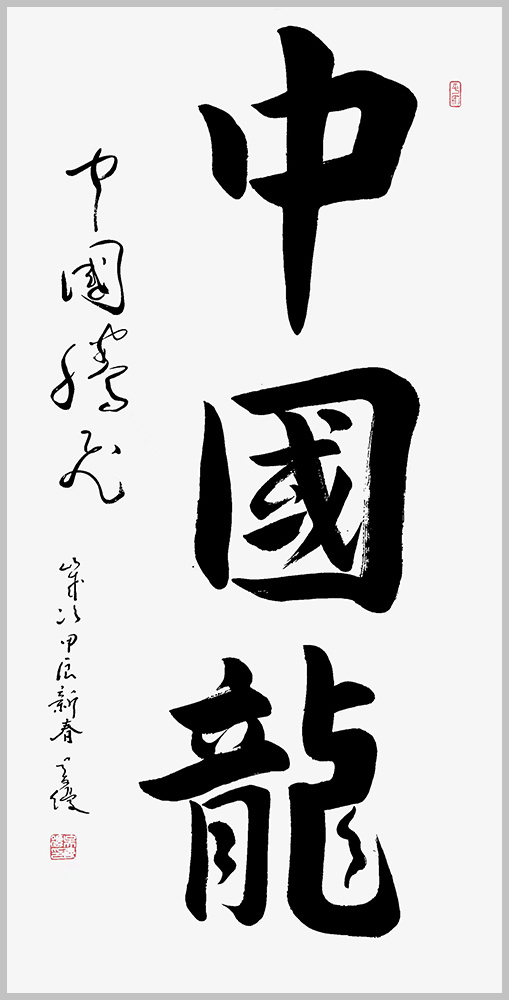 中國龍
中國騰飛
歲次甲辰新春